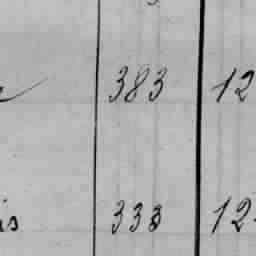 383 12
is 333 12